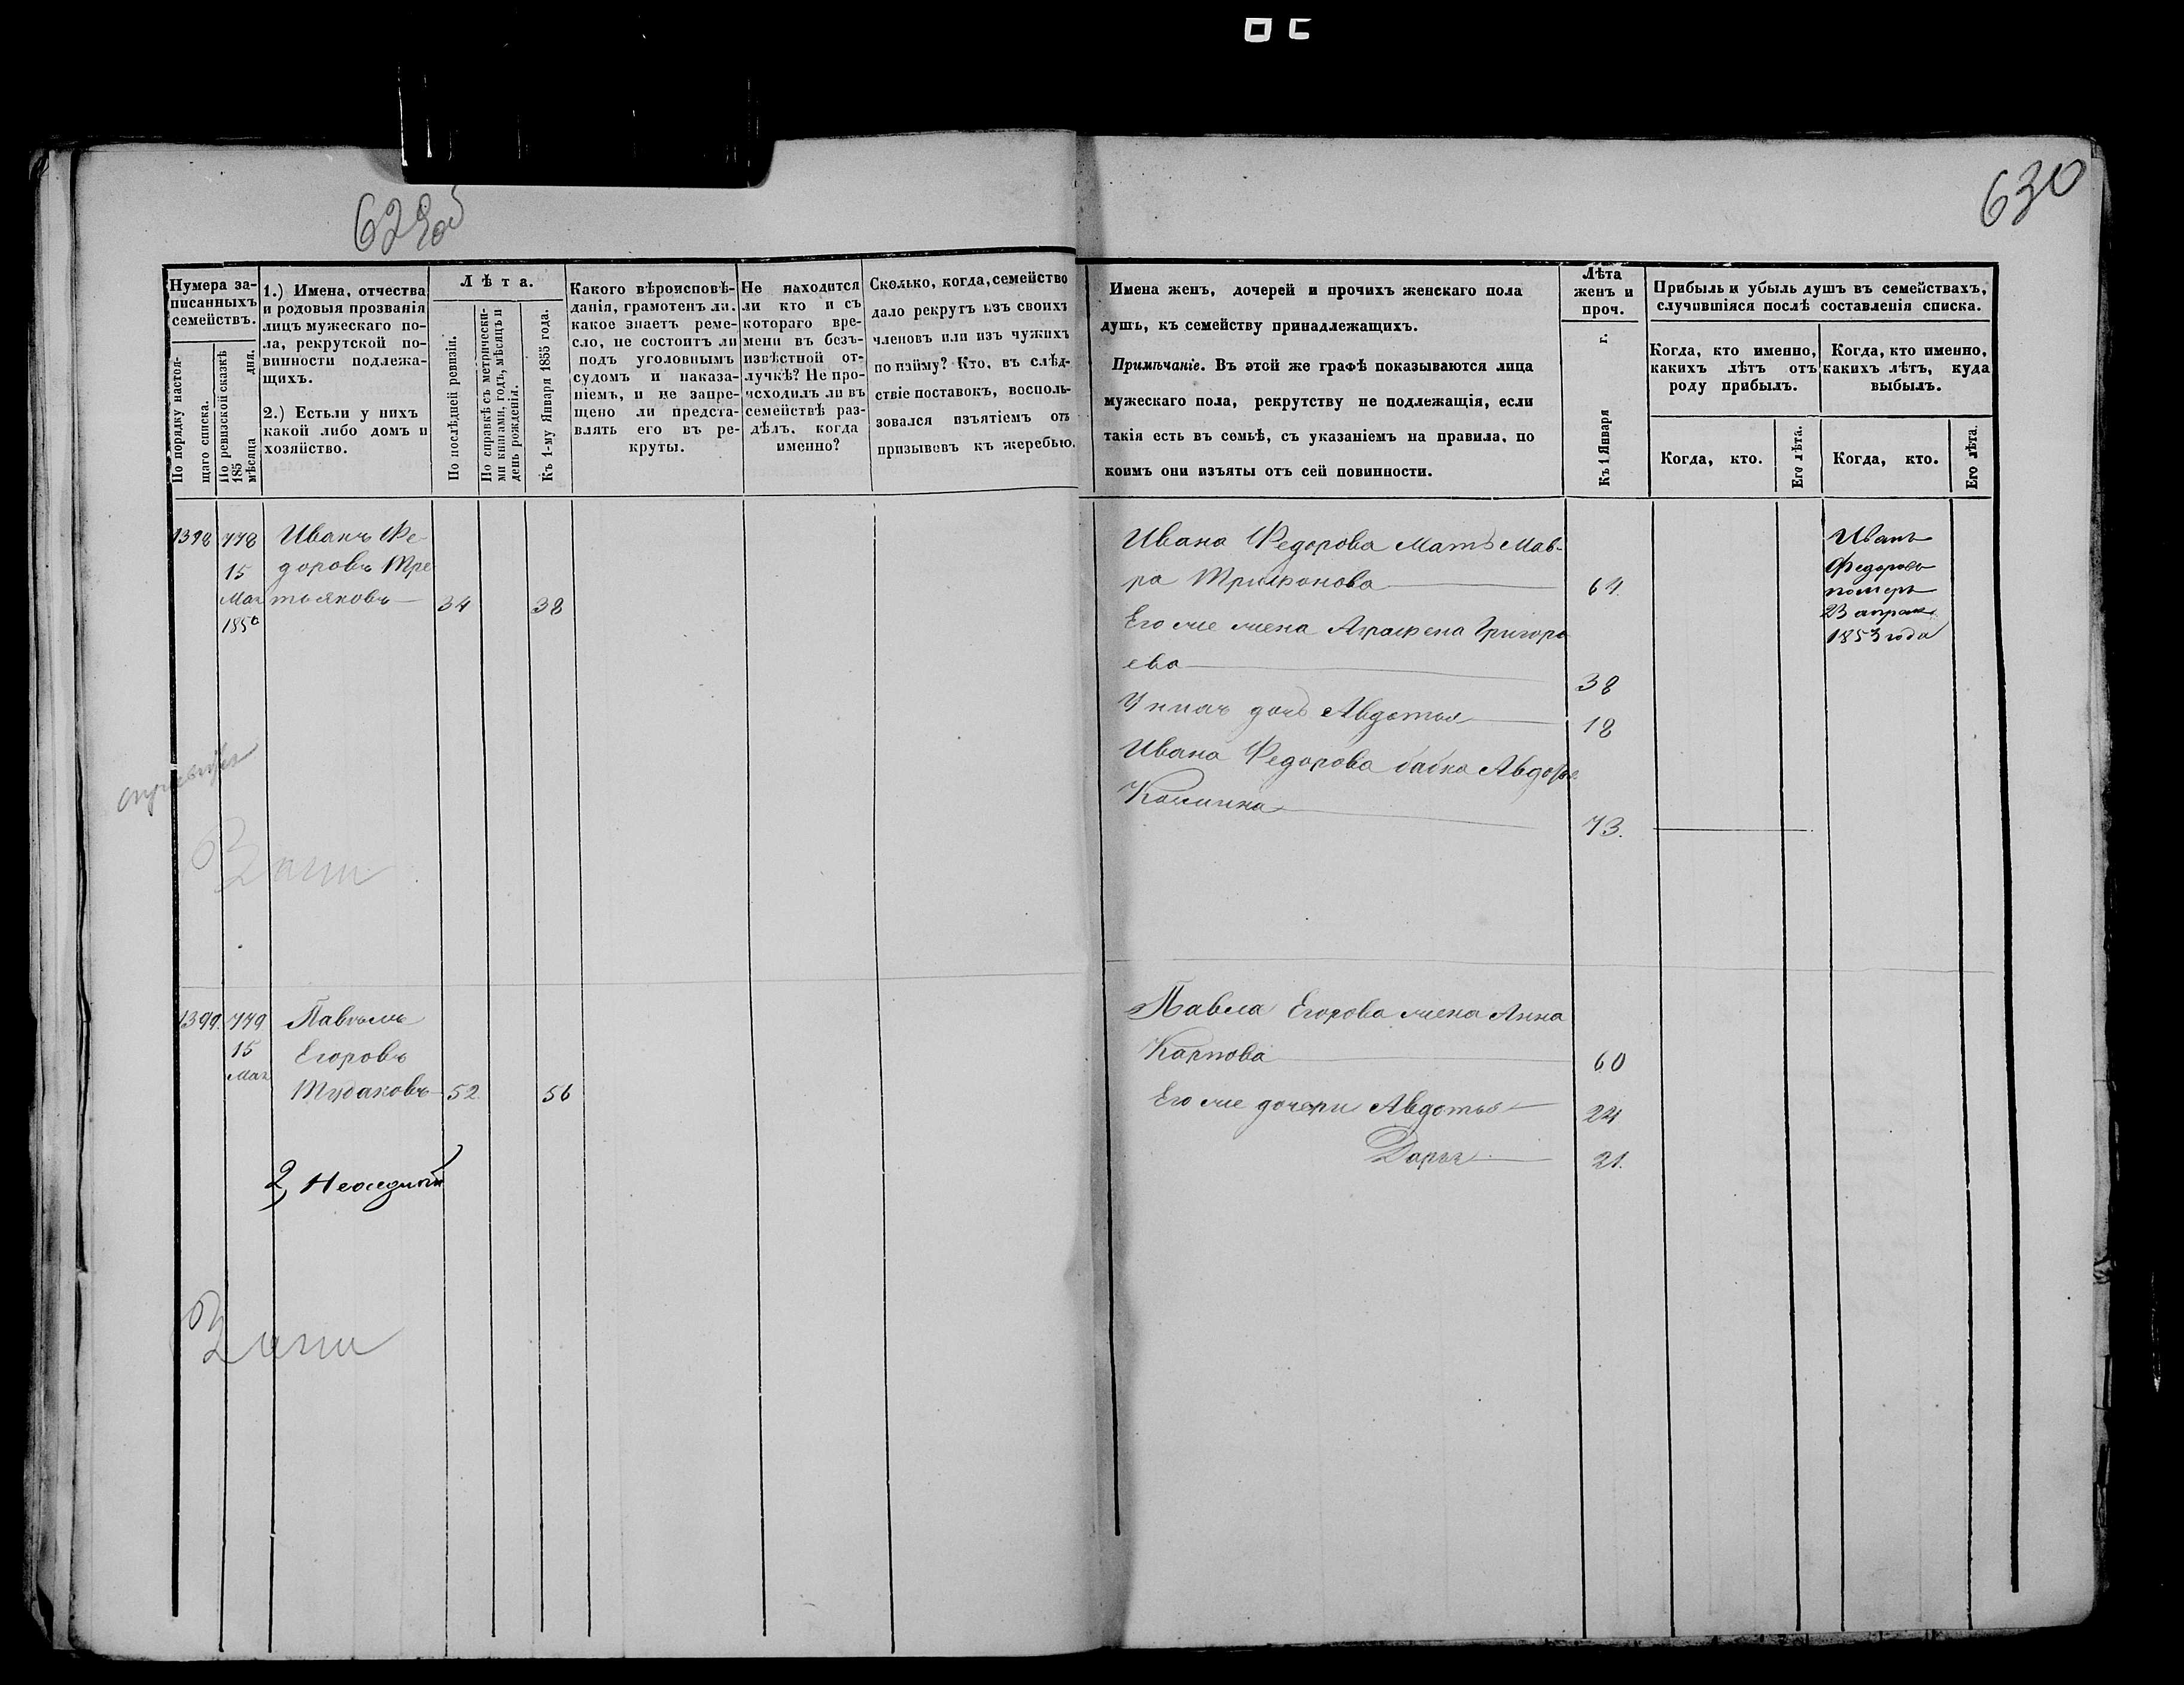 629об
630
Нумера за-
писанныхъ
семействъ.
По порядку настоя-
щаго списка.
По ревизской сказкѣ
185 дня.
мѣсяца
1.) Имена, отчества
и родовыя прозванія
лицъ мужескаго по-
ла, рекрутской по-
винности подлежа-
щихъ.
2.) Естьли у нихъ
какой либо домъ и
хозяйство.
Лѣта.
По послѣдней ревизіи.
По справкѣ съ метрически-
ми книгами, годъ, мѣсяцъ и
день рожденія.
Къ 1-му Января 1855 года.
Какого вѣроисповѣ-
данія, грамотенъ ли.
какое знаетъ реме-
сло, не состоитъ ли
подъ уголовнымъ
судомъ и наказа-
ніемъ, и не запре-
щено ли предста-
влять его въ ре-
круты.
Не находится
ли кто и съ
котораго вре-
мени въ безъ-
извѣстной от-
лучкѣ? Не про-
исходилъ ли въ
семействѣ раз-
дѣлъ, когда
именно?
Сколько, когда, семейство
дало рекрутъ изъ своихъ
членовъ или изъ чужихъ
по найму? Кто, въ слѣд-
ствіе поставокъ, восполь-
зовался изъятіемъ отъ
призывовъ къ жеребью.
Имена женъ, дочерей и прочихъ женскаго пола
душъ, къ семейству принадлежащихъ.
Примѣчаніе. Въ этой же графѣ показываются лица
мужескаго пола, рекрутству не подлежащія, если
такія есть въ семьѣ, съ указаніемъ на правила, по
коимъ они изъяты отъ сей повинности.
Лѣта
женъ и
проч.
Къ 1 Января г.
Прибыль и убыль душъ въ семействахъ,
случившіяся послѣ составленія списка.
Когда, кто именно,
какихъ лѣтъ отъ
роду прибылъ.
Когда, кто именно,
какихъ лѣтъ, куда
выбылъ.
Когда, кто.
Его лѣта.
Когда, кто.
Его лѣта.
1398 778 Иванъ Фе-
15 доровъ Тре
Мая тьяковъ 34 38
1850
Ивана Федорова мать Мав-
ра Трифонова 64
Его же жена Аграфена Григорь
ева 38
У нихъ дочь Авдотья 18
Ивана Федорова бабка Авдотья
Комина 73.
Иванъ
Федоровъ
померъ
23 апреля
1853 года
1399. 779 Павелъ
15 Егоровъ
Мая Тубаковъ 52 56
2, Неоседлый
Павла Егорова жена Анна
Карпова 60
Его же дочери Авдотья 24
Дарья 21.